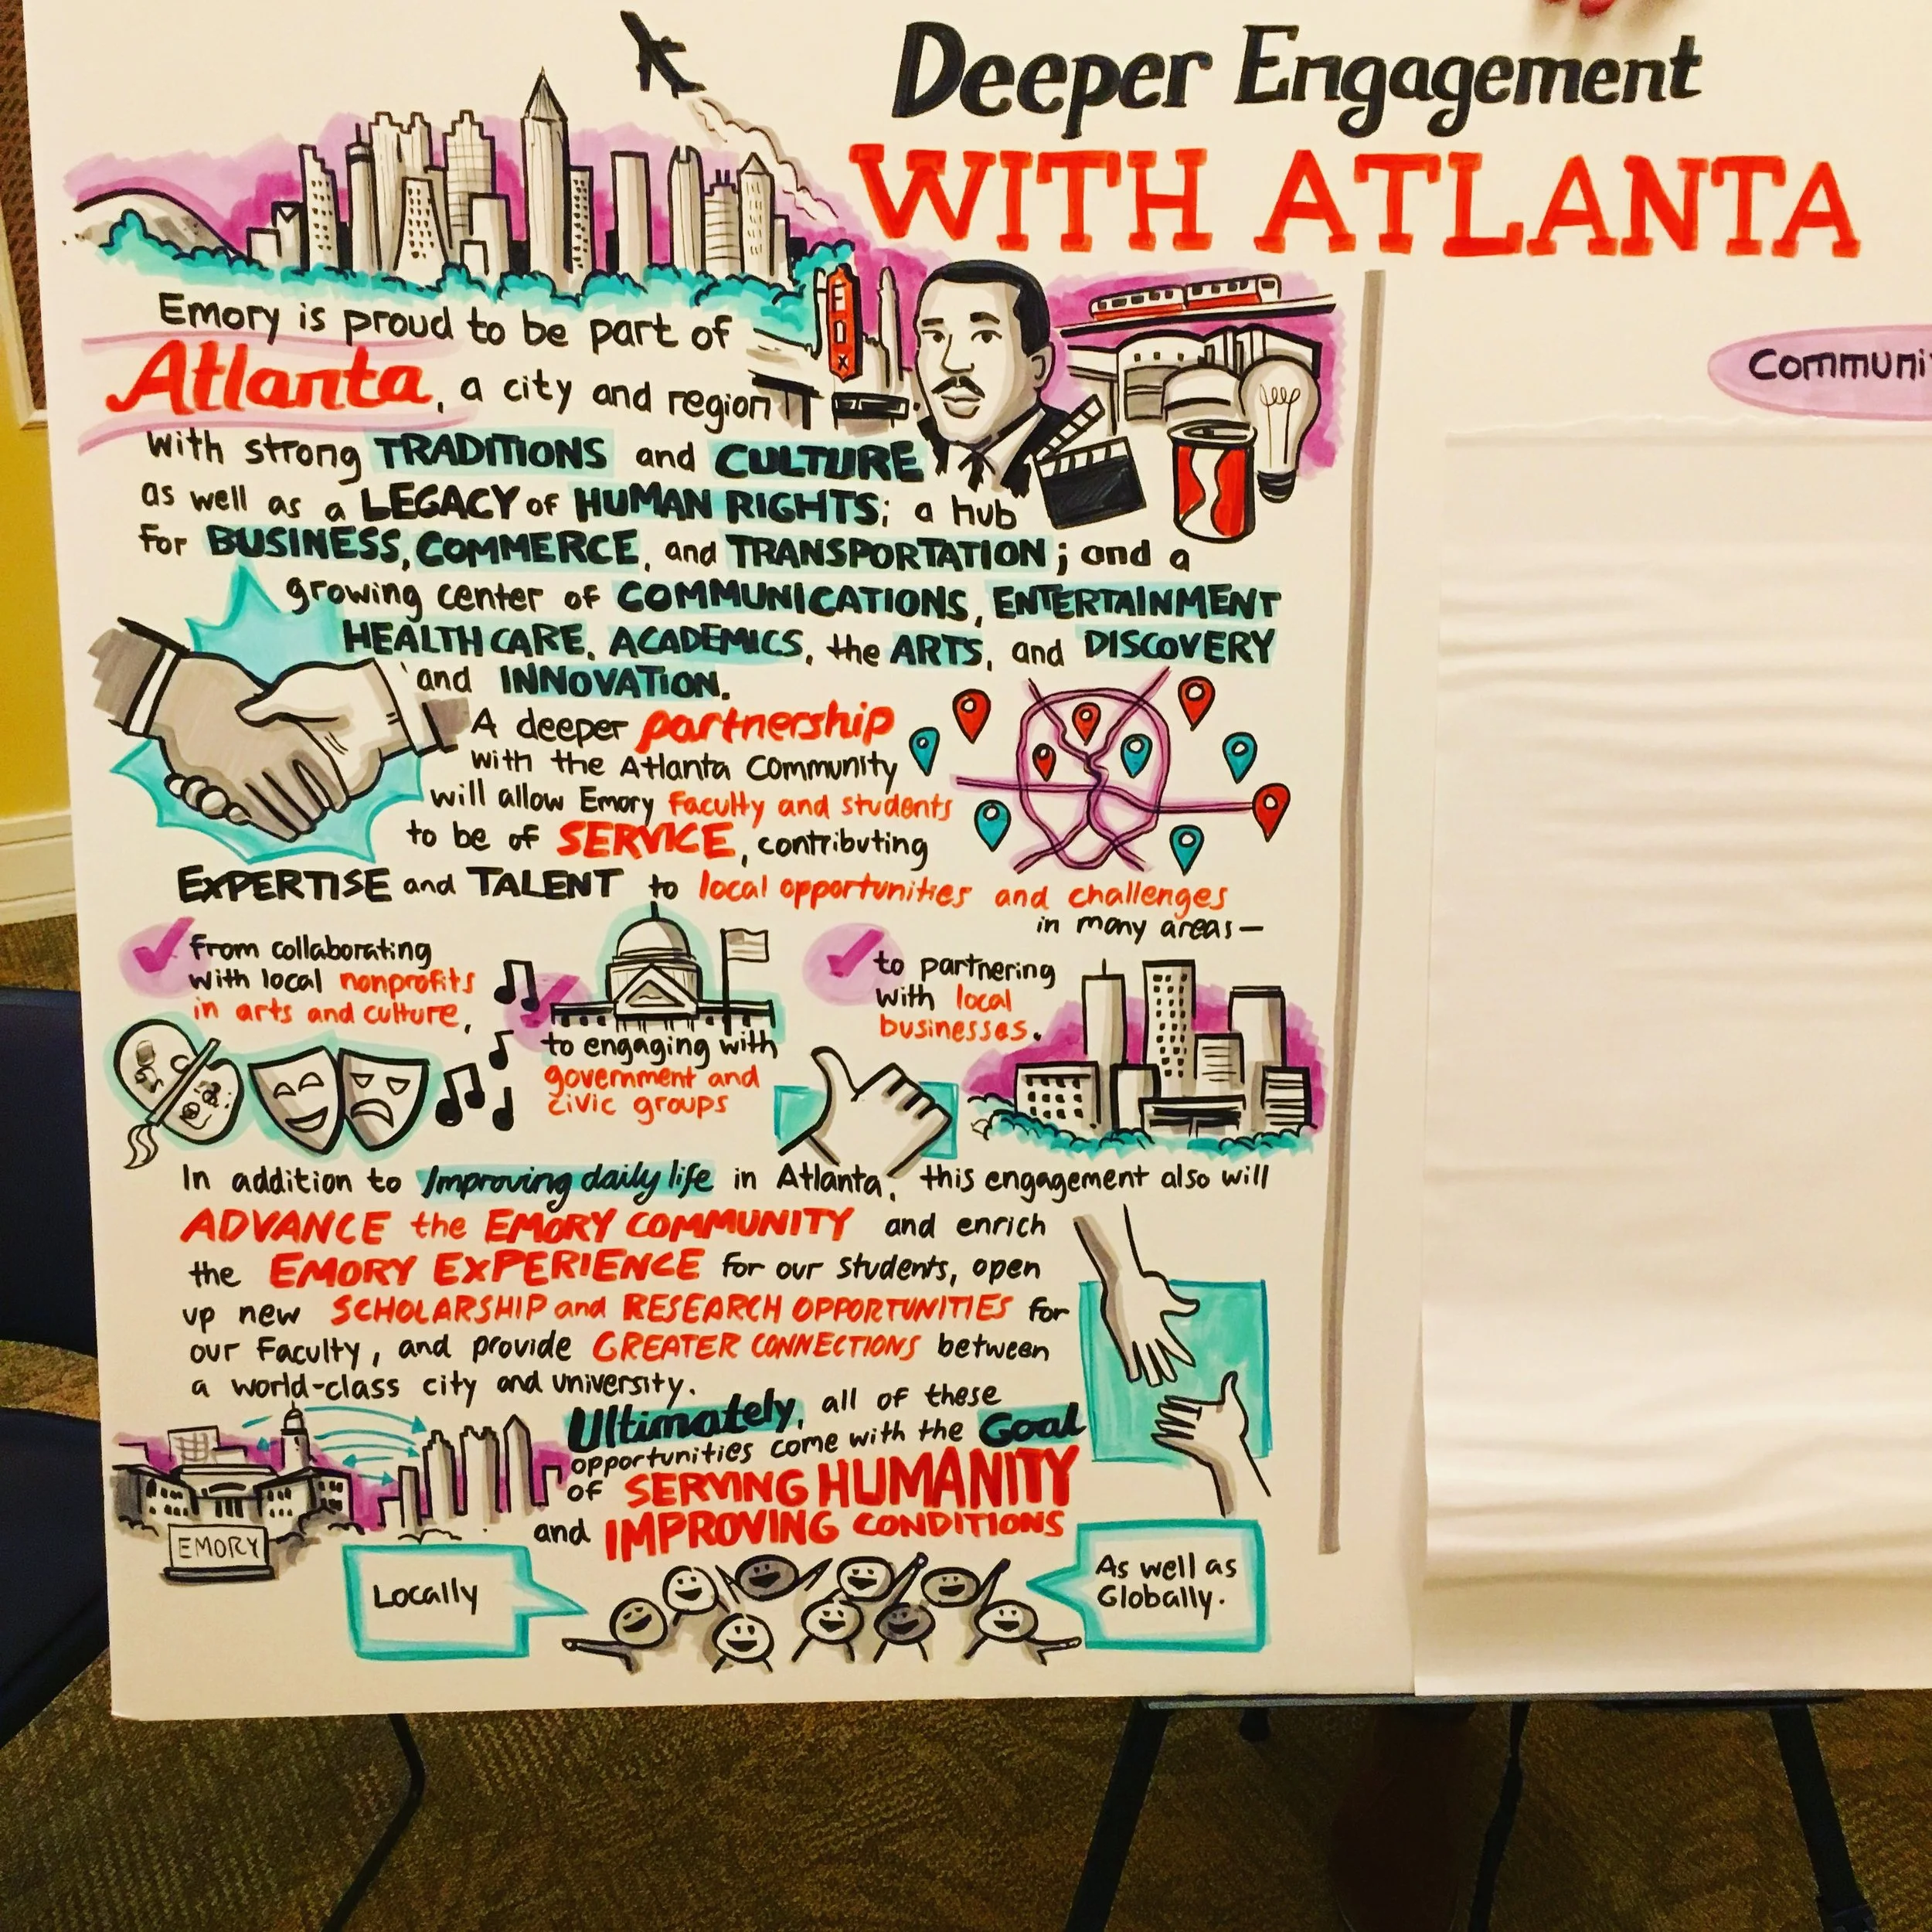 Deeper Engagement
WITH ATLANTA
Emory is proud to be part of
Atlanta, a city and region
with strong TRADITIONS and CULTURE
as well as a LEGACY of HUMAN RIGHTS; a hub
For BUSINESS, COMMERCE, and TRANSPORTATION; and a
growing center of COMMUNICATIONS, ENTERTAINMENT
HEALTH CARE, ACADEMICS, the ARTS, and DISCOVERY
and INNOVATION.
A deeper partnership
with the Atlanta Community
will allow Emory Faculty and students
to be of SERVICE, contributing
EXPERTISE and TALENT to local opportunities and challenges
in many areas—
From collaborating
with local nonprofits
in arts and culture,
to engaging with
government and
civic groups
to partnering
with local
businesses.
In addition to Improving daily life in Atlanta, this engagement also will
ADVANCE the EMORY COMMUNITY and enrich
the EMORY EXPERIENCE for our students, open
up new SCHOLARSHIP and RESEARCH OPPORTUNITIES for
our Faculty, and provide GREATER CONNECTIONS between
a world-class city and university.
Ultimately, all of these
opportunities come with the Goal
of SERVING HUMANITY
and IMPROVING CONDITIONS
EMORY
Locally
As well as
Globally.